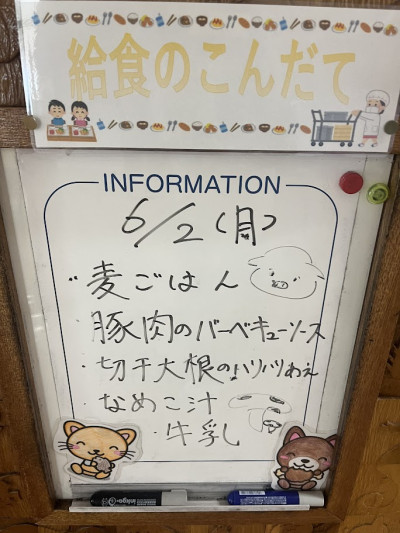 給食のこんだて
INFORMATION
6/2(月)
・麦ごはん
・豚肉のバーベキューソース
・切干大根のハリハリあえ
・なめこ汁
・牛乳